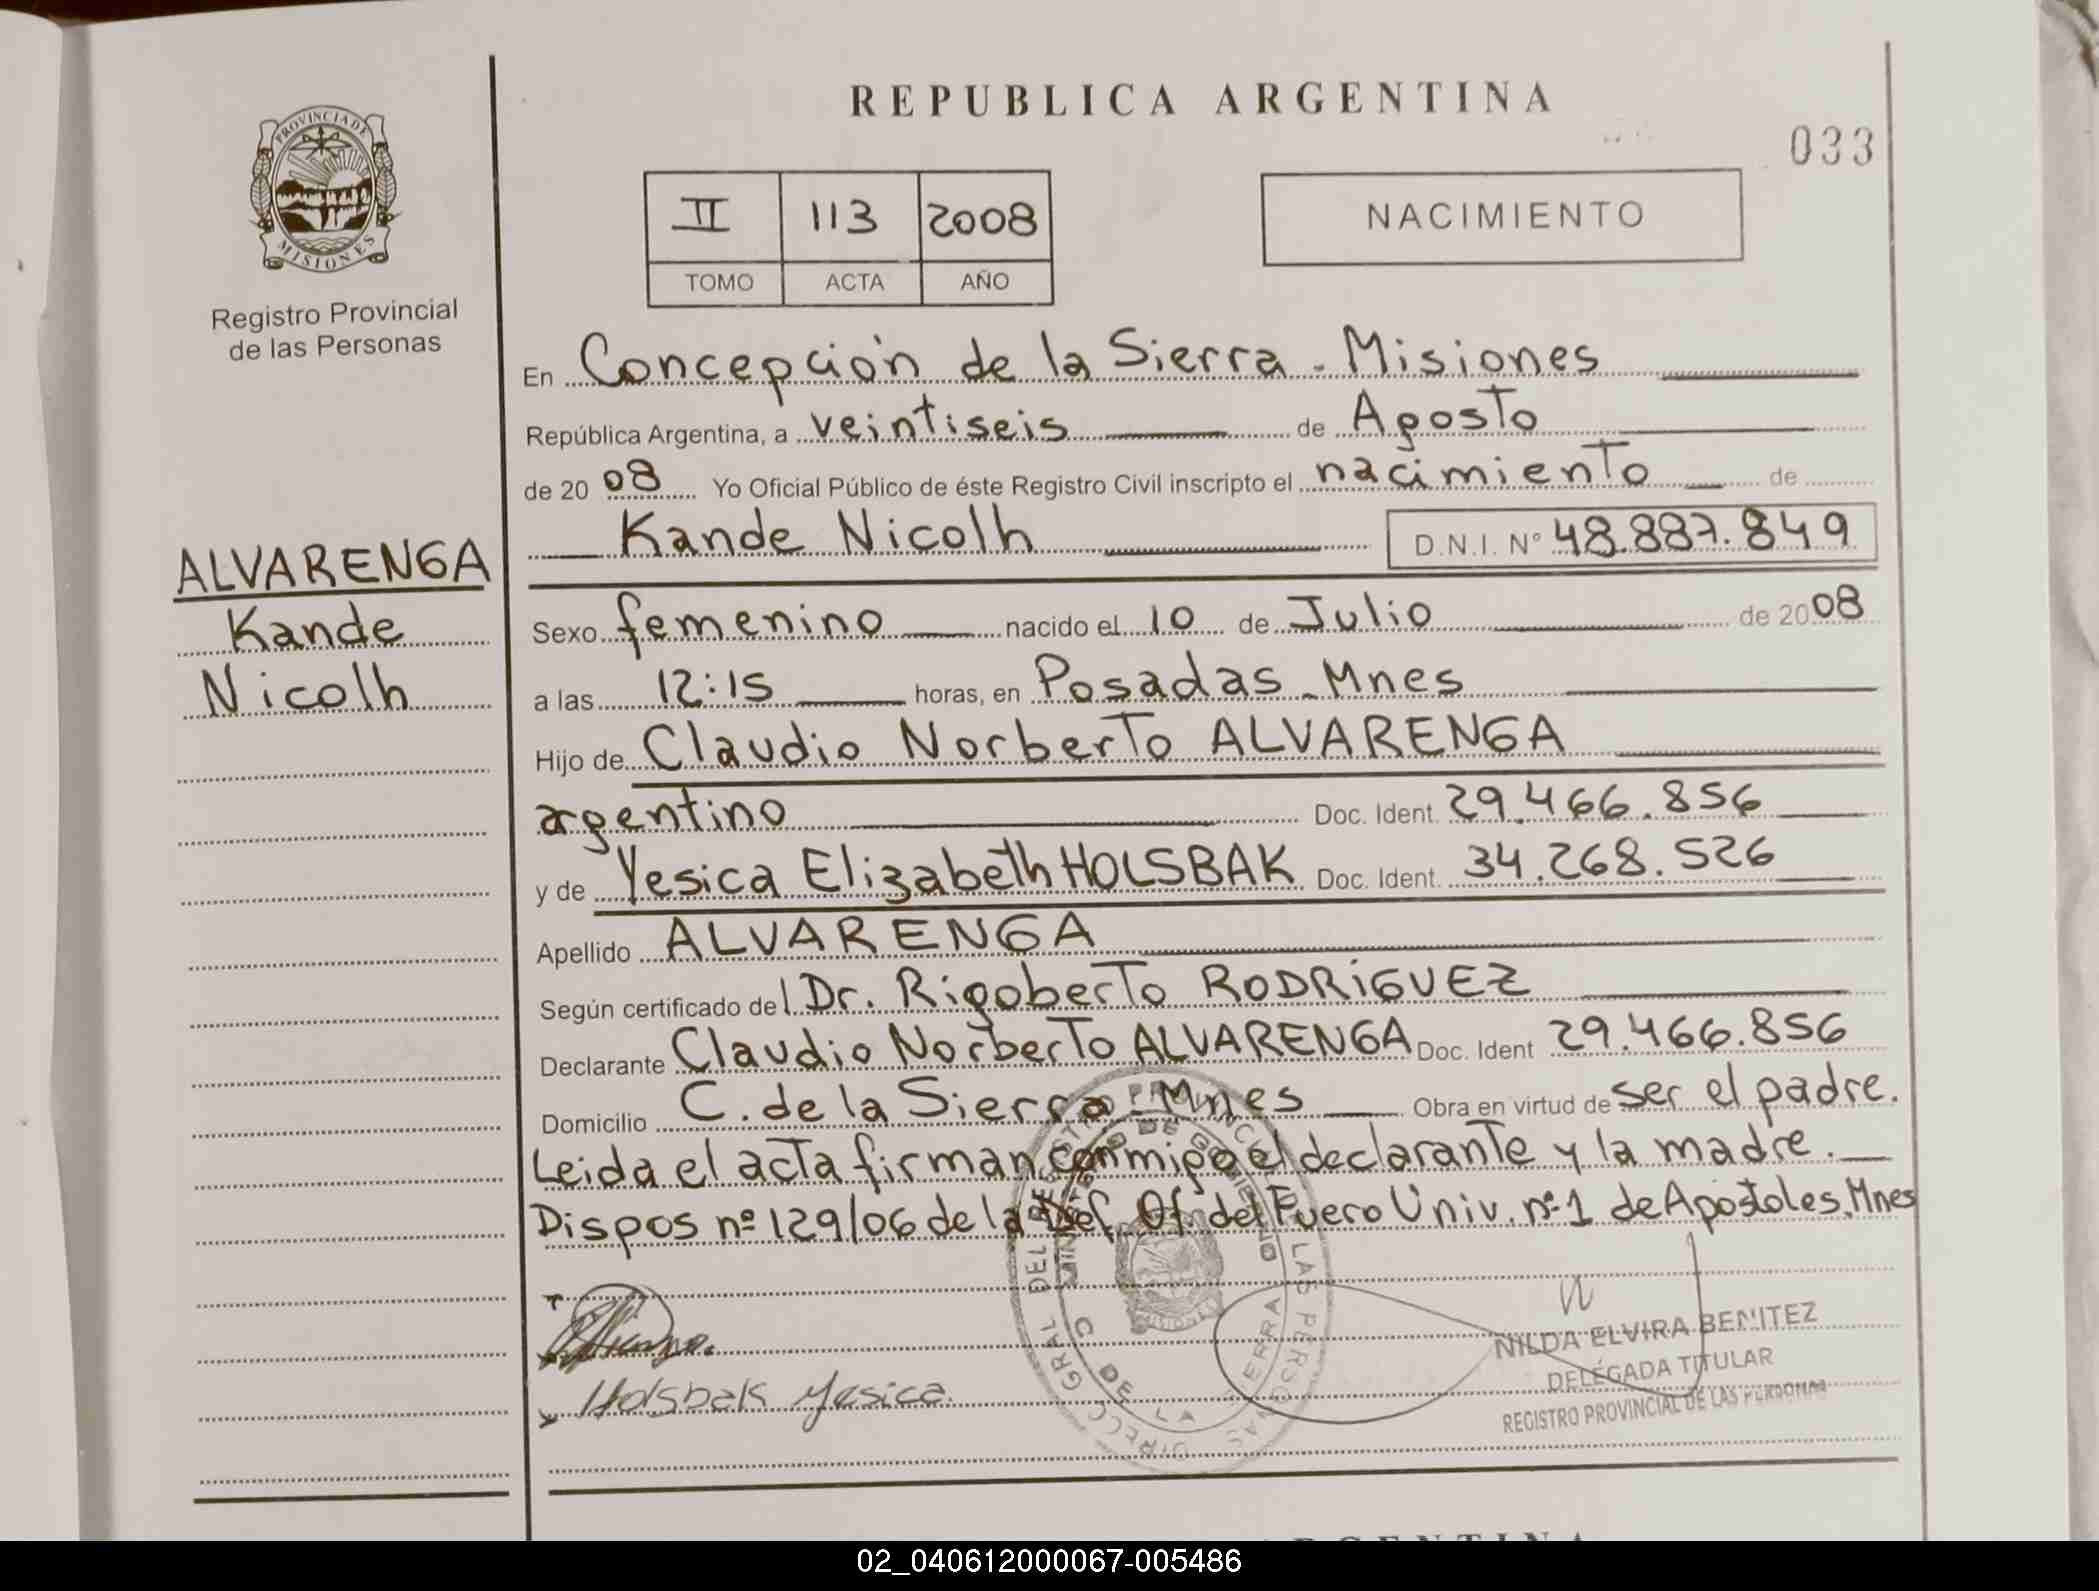 REPUBLICA ARGENTINA
033
PROVINCIA DE
MISIONES
Registro Provincial
de las Personas
II 113 2008
TOMO ACTA AÑO
NACIMIENTO
En Concepción de la Sierra - Misiones
República Argentina, a veintiseis de Agosto
de 20 08 Yo Oficial Público de éste Registro Civil inscripto el nacimiento de
Kande Nicolh D.N.I. Nº 48.887.849
ALVARENGA
Kande
Nicolh
Sexo femenino nacido el 10 de Julio de 2008
a las 12:15 horas, en Posadas - Mnes
Hijo de Claudio Norberto ALVARENGA
argentino Doc. Ident. 29.466.856
y de Yesica Elizabeth HOLSBAK Doc. Ident. 34.268.526
Apellido ALVARENGA
Según certificado del Dr. Rigoberto RODRÍGUEZ
Declarante Claudio Norberto ALVARENGA Doc. Ident 29.466.856
Domicilio C. de la Sierra - Mnes Obra en virtud de ser el padre.
Leida el acta firman conmigo el declarante y la madre.
Dispos nº 129/06 de la Def. Of. del Fuero Univ. nº 1 de Apostoles, Mnes
Holsbak Yesica
NILDA ELVIRA BENITEZ
DELEGADA TITULAR
REGISTRO PROVINCIAL DE LAS PERSONAS
02_040612000067-005486